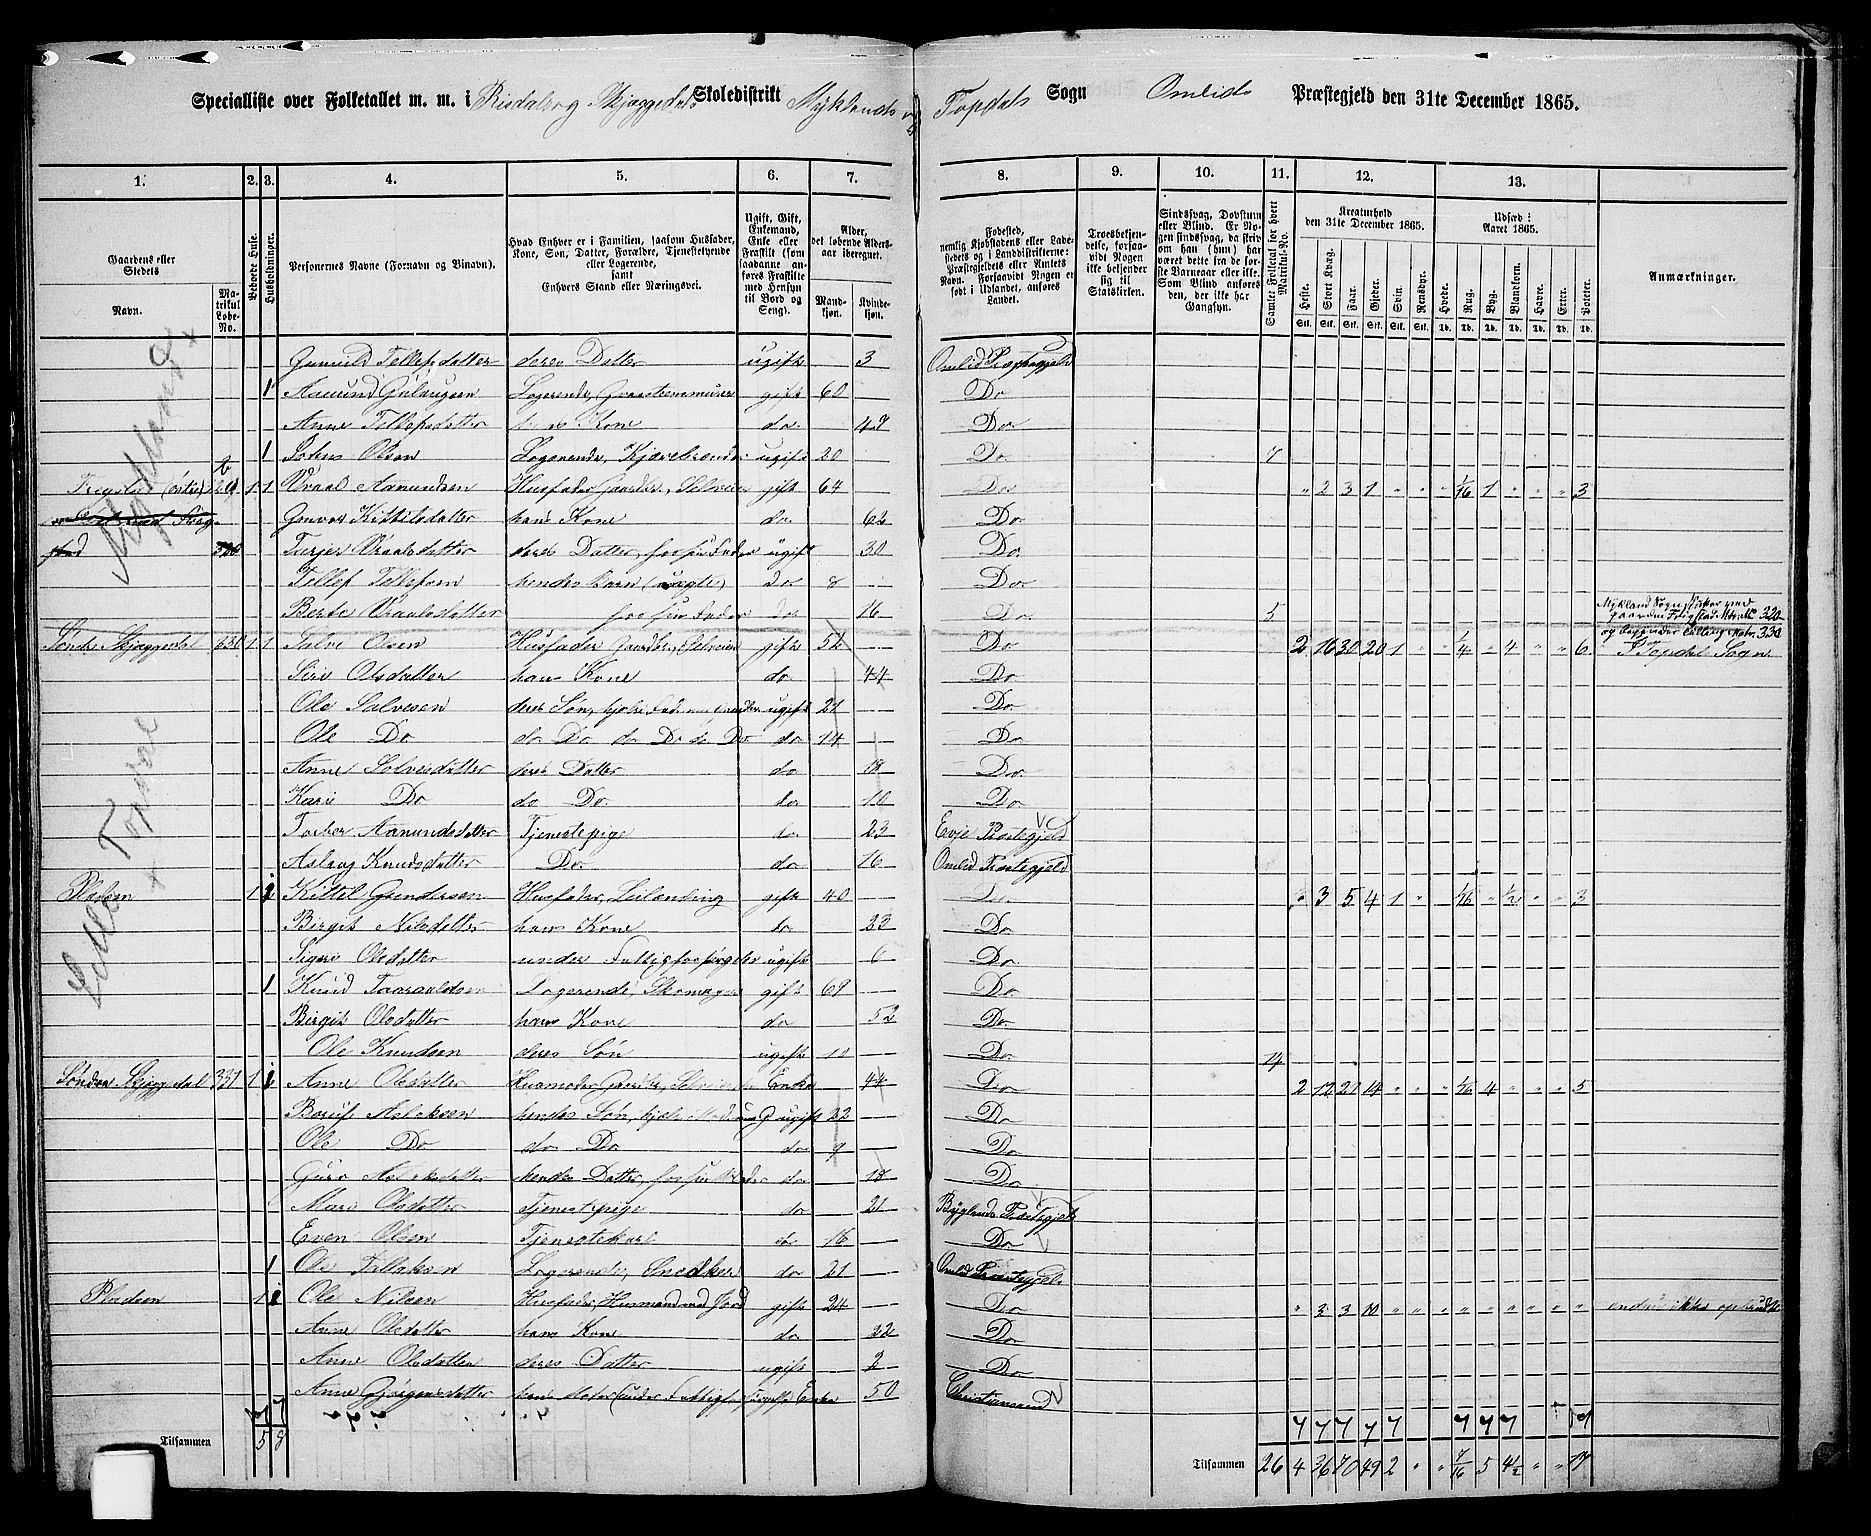 Specialliste over Folketallet m. m. i Risdal og Skjæggedals Skoledistrikt Myklands og Topdals Sogn Omlids Præstegjeld den 31te December 1865.
1. 2. 3. 4. 5. 6. 7. 8. 9. 10. 11. 12. 13.
Gaardens eller Stedets Navn. Matrikul Løbe-No. Beboede Huse. Husholdninger. Personernes Navne (Fornavn og Tilnavn). Hvad Enhver er i Familien, saasom Husfader, Kone, Søn, Datter, Forældre, Tjenestetyende eller Logerende, samt Enhvers Stand eller Næringsvei. Ugift, Gift, Enkemand, Enke eller Fraskilt (som saadanne anføres Fraskilte med Hensyn til Bord og Seng). Alder, det løbende Alders-aar iberegnet. Mandkjøn. Kvindekjøn.
Fødested, nemlig Kjøbstadens eller Ladestedets og i Landdistrikterne: Præstegjeldets eller Amtets Navn. Forsaavidt Nogen er født i Udlandet, anføres Landet. Troesbekjendelse, forsaavidt Nogen ikke bekjender sig til Statskirken. Sindssvag, Døvstum eller Blind. Samlet Folketal for hvert Matrikul-No. Kreaturhold den 31te December 1865. Heste. Stort Kvæg. Faar. Gjeder. Svin. Rensdyr. Udsæd i Aaret 1865. Hvede. Rug. Byg. Blandkorn. Havre. Erter. Poteter. Anmærkninger.
Gunnild Tellefsdatter deres Datter ugift 3 Omlid Præstegjeld
1 Aamund Gjulaugsen Logerende, Graasteenmurer gift 60 Do
Anne Tellefsdatter hans Kone do 49 Do
1 Johns Olsen Logerende, ugift 20 Do 7
1 1 Vraal Aamundsen Husfader, Gaardbr., Selveier gift 64 Do " 2 3 1 " " " 1/16 1 " " " 3
Gunvor Kittilsdatter hans Kone do 62 Do
Turjer Vraalsdatter deres Datter, forsør Fader ugift 30 Do
Tellef Tellefsen hendes Barn (uægte) do 8 Do
Berte Vraalsdatter forsør Fader do 16 Do 5
Søndre Skjæggedal 330 1 1 Salve Olsen Husfader Gaardbr., Selveier gift 52 Do 2 16 30 20 1 " " 1/4 " 4 " " 6 I Topdal Sogn
Siri Olsdatter hans Kone do 44 Do
Ole Salvesen deres Søn, ugift 21 Do
Ole Do do Do do Do do Do do 14 Do
Anne Salvesdatter deres Datter do 18 Do
Kari Do do Do do 10 Do
Torbor Aamundsdatter Tjenestepige do 23 Evje Præstegjeld
Aslaug Knudsdatter Do do 16 Omlid Præstegjeld
Pladsen 1 1 Kittel Gundersen Husfader, Leilænding gift 40 Do " 3 5 4 1 " " 1/16 " 1/2 " " 3
Birgit Nilsdatter hans Kone do 23 Do
Sigri Olsdatter under Fattigforsørgelse ugift 6 Do
1 Knud Taaraldsen Logerende, Skomager gift 69 Do
Birgit Olsdatter hans Kone do 52 Do
Ole Knudsen deres Søn ugift 10 Do 14
Søndre Skjæggedal 331 1 1 Anne Olsdatter Husmoder, Gaardbr., Selveier Enke 44 Do 2 12 20 14 " " " 1/16 4 " " " 5
Boruf Aslaksen hendes Søn, hjelp. Mod. ugift 22 Do
Ole Do do Do do 9 Do
Guro Aslaksdatter hendes Datter, forsør Moder do 18 Do
Mari Olsdatter Tjenestepige do 21 Byglands Præstegjeld
Even Olsen Tjenestekarl do 16 Do
1 Ole Tellefsen Logerende, Snedker do 21 Omlid Præstegjeld
Pladsen 1 1 Ole Nilsen Husfader, Husmand med Jord gift 24 Do " 3 3 10 " " " " " " " " "
Anne Olsdatter hans Kone do 22 Do
Anne Olsdatter deres Datter ugift 2 Do
Anne hans Moder (under Fattigforsørgelse) Enke 50 Christiansand
Tilsammen 5 8
7 7 7 7 7 7 7 7
Tilsammen 26 4 36 70 49 2 " " 7/16 5 4 1/2 " " 17
Mykland
Lille Topdal